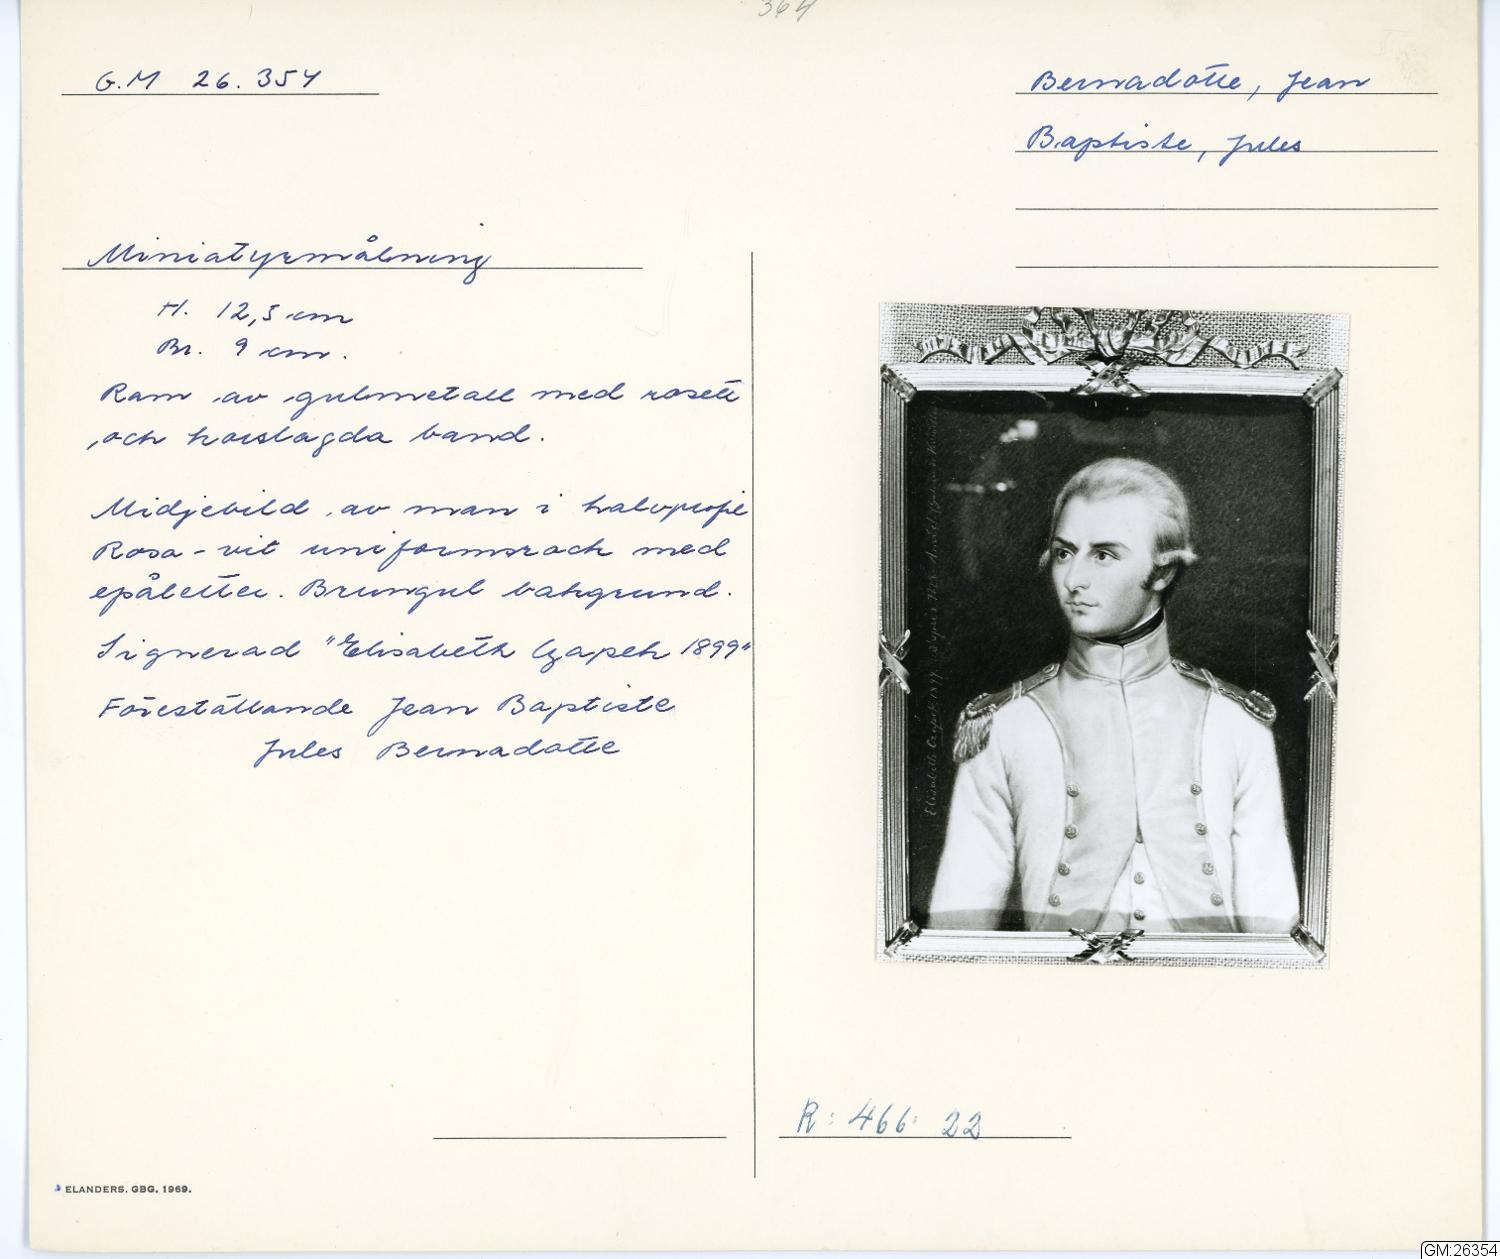 364
G.M 26.354
Bernadotte, Jean
Baptiste, Jules
Miniatyrmålning
H. 12,5 cm
Br. 9 cm.
Ram av gulmetall med rosett
och korslagda band.
Midjebild av man i halvprofil
Rosa-vit uniformsrock med
epåletter. Brungul bakgrund.
Signerad "Elisabeth Czapek 1899"
Föreställande Jean Baptiste
Jules Bernadotte
Elisabeth Czapek 1899
R: 466: 22
ELANDERS. GBG. 1969.
GM:26354